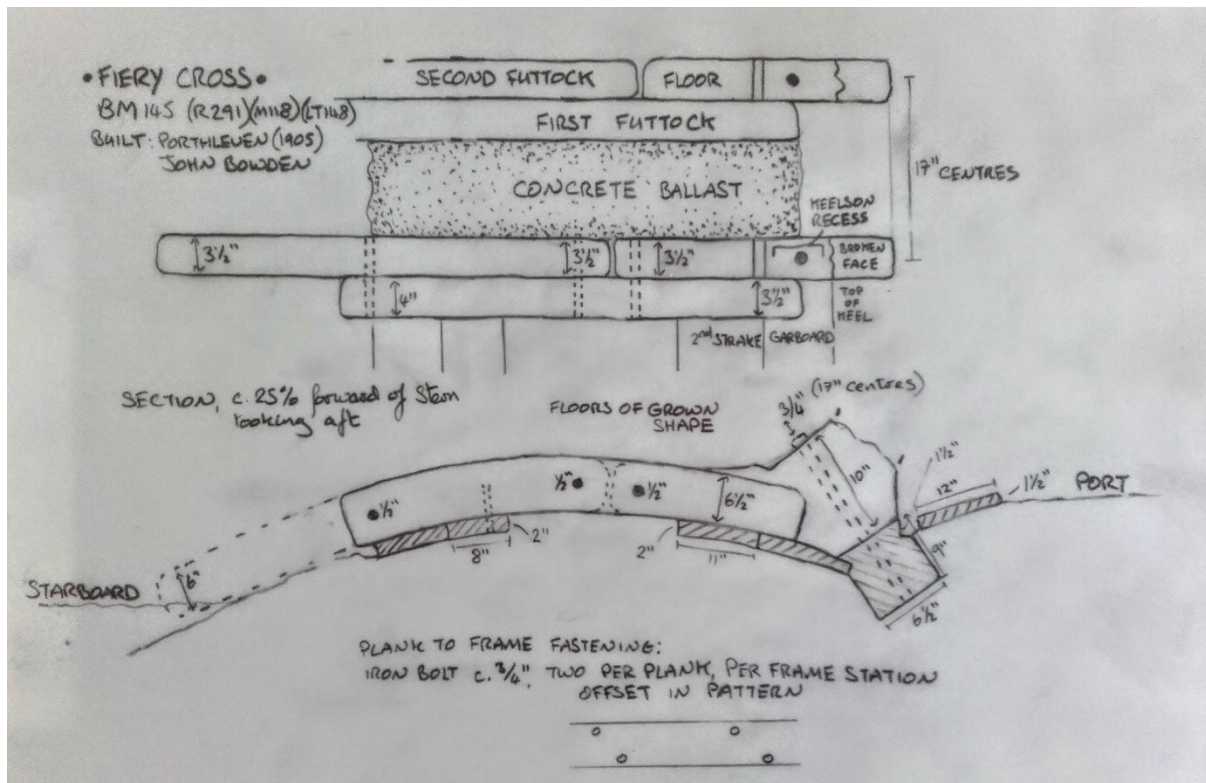 • FIERY CROSS •
BM 145 (R291)(M118)(LT148)
BUILT: PORTHLEVEN (1905)
JOHN BOWDEN
SECOND FUTTOCK
FLOOR
FIRST FUTTOCK
CONCRETE BALLAST
17" CENTRES
KEELSON
RECESS
3½"
3½"
3½"
BROKEN
FACE
4"
3½"
TOP
OF
KEEL
2nd STRAKE
GARBOARD
SECTION, c. 25% forward of Stern
looking aft
FLOORS OF GROWN
SHAPE
3/4" (17" centres)
10"
1½"
12"
1½"
PORT
½"
½"
½"
6½"
2"
8"
2"
11"
9"
6½"
6"
STARBOARD
PLANK TO FRAME FASTENING:
IRON BOLT c. 3/4", TWO PER PLANK, PER FRAME STATION
OFFSET IN PATTERN